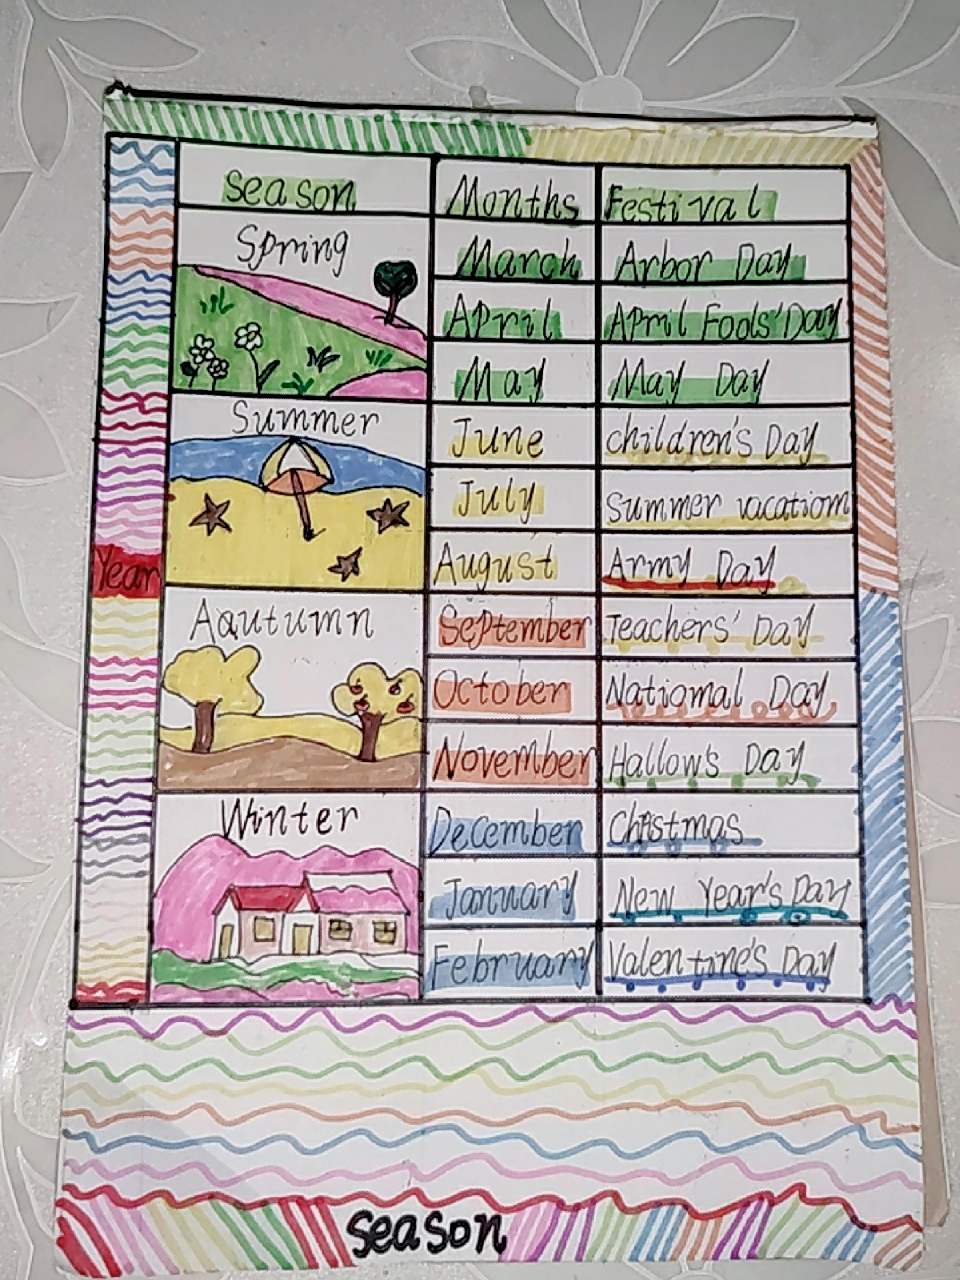 season Months Festival
Spring March Arbor Day
April April Fools' Day
May May Day
Summer June children's Day
July Summer vacatiom
August Army Day
Year
Aautumn September Teachers' Day
October Natiomal Day
November Hallow's Day
Winter December Christmas
January New Year's Day
February Valentine's Day
season